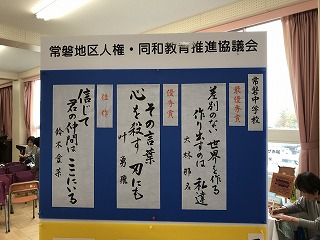 常磐地区人権・同和教育推進協議会
常磐中学校
最優秀賞
差別のない世界を作る
作り出すのは私達
大林那名
優秀賞
その言葉
心を殺す刃にも
叶勇飛
佳作
信じて
君の仲間はここにいる
鈴木倉菜